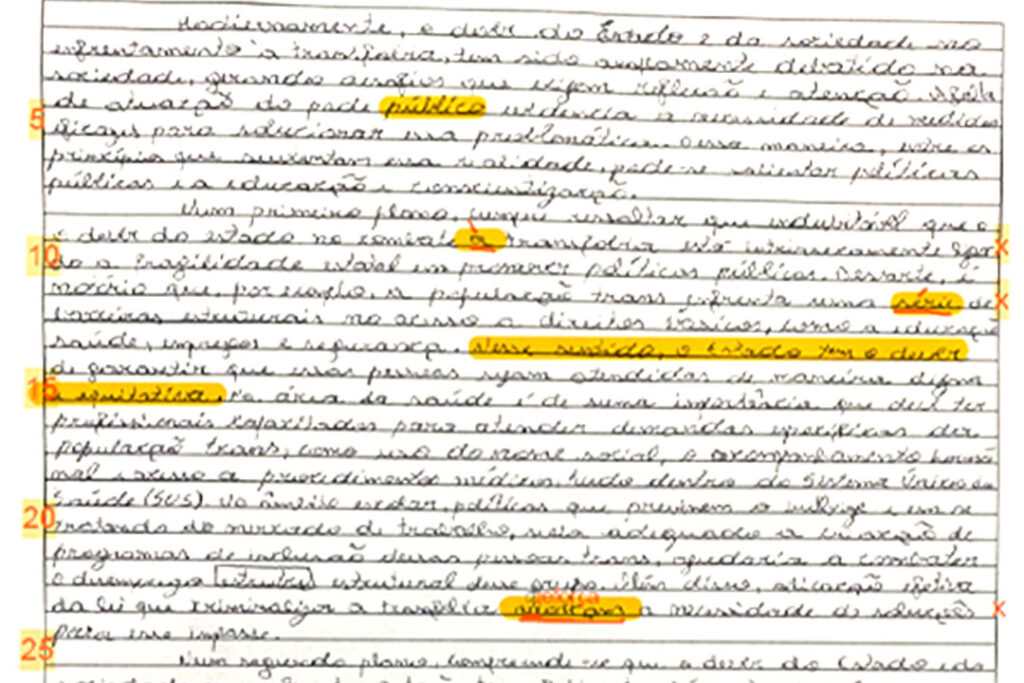 Hodiernamente, o dever do Estado e da sociedade no
enfrentamento a transfobia, tem sido amplamente debatido na
sociedade, gerando desafios que exigem reflexão e atenção. A falta
5 de atuação do pode público evidencia a necessidade de medidas
eficazes para solucionar essa problemática. Dessa maneira, entre os
princípios que sustentam essa realidade, pode-se salientar políticas
públicas e a educação e conscientização.
Num primeiro plano, cumpre ressaltar que indubitável que o
o dever do estado no combate a transfobia está intrinsecamente liga- x
10 do a fragilidade estatal em promover políticas públicas. Dessarte, é
notório que, por exemplo, a população trans enfrenta uma série de x
barreiras estruturais no acesso a direitos básicos, como a educação
saúde, empregos e segurança. Nesse sentido, o Estado tem o dever
de garantir que essas pessoas sejam atendidas de maneira digna
15 e equitativa. Na área da saúde é de suma importância que deve ter
profissionais capacitados para atender demandas específicas der
população trans, como uso do nome social, o acompanhamento hormo
nal e acesso a procedimentos médicos, tudo dentro do Sistema Único da
Saúde (SUS). No âmbito escolar, políticas que previnem o e em se
20 tratando do mercado de trabalho, seria adequado a criação de
programas de inclusão dessas pessoas trans, ajudaria a combater
o desemprego estrutu estrutural desse grupo. Além disso, aplicação efetiva
reforça
da lei que criminalizar a transfobia a necessidade de soluções x
para esse impasse.
25 Num segundo plano, compreende-se que o dever do Estado e da